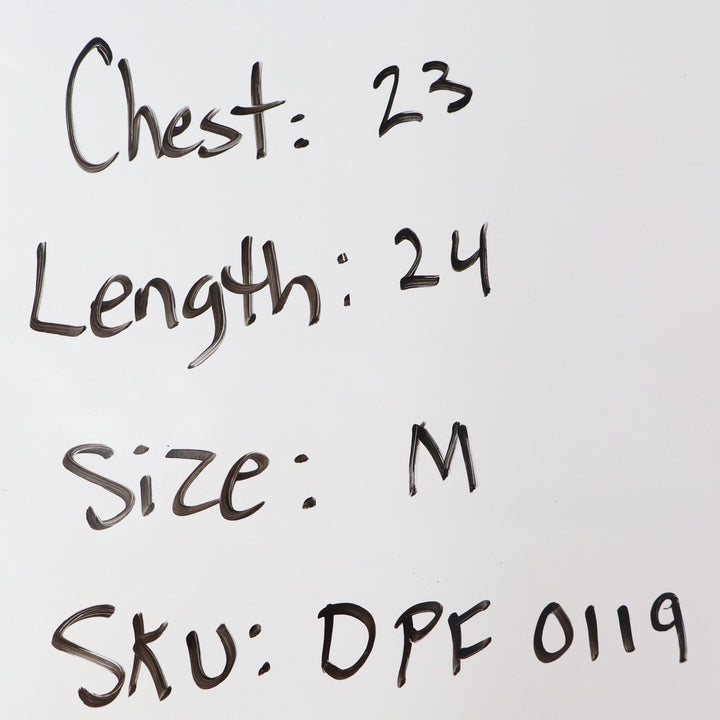 Chest: 23
Length: 24
Size: M
SKU: DPF 0119